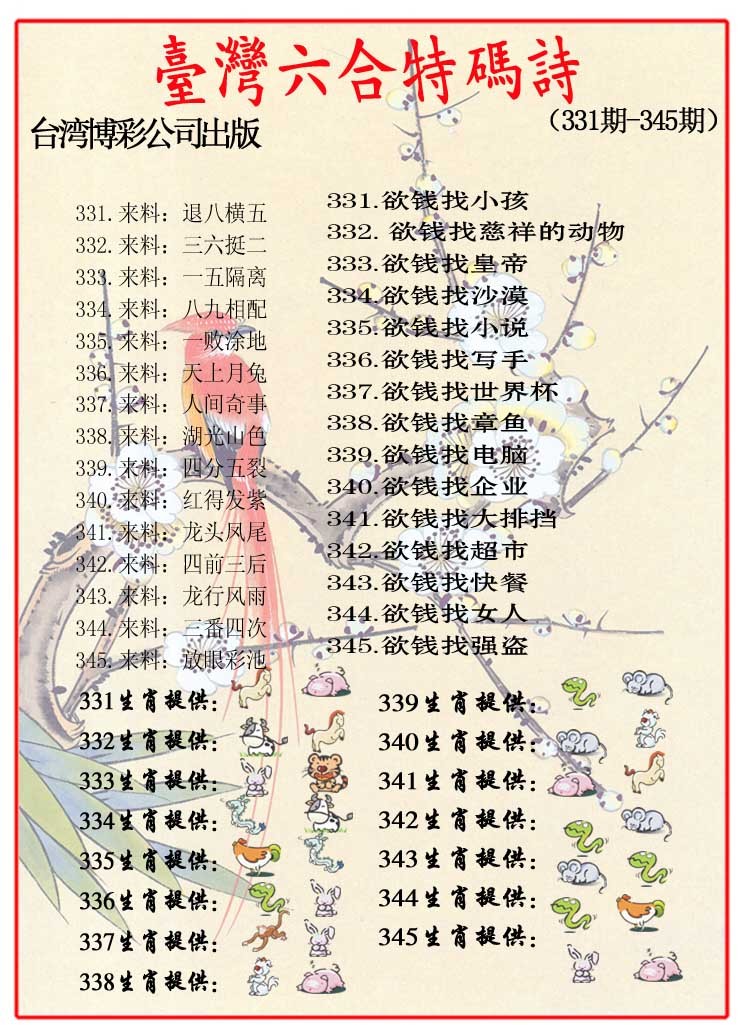 臺灣六合特碼詩
台湾博彩公司出版
（331期-345期）
331.来料：退八横五
332.来料：三六挺二
333.来料：一五隔离
334.来料：八九相配
335.来料：一败涂地
336.来料：天上月兔
337.来料：人间奇事
338.来料：湖光山色
339.来料：四分五裂
340.来料：红得发紫
341.来料：龙头风尾
342.来料：四前三后
343.来料：龙行风雨
344.来料：三番四次
345.来料：放眼彩池
331.欲钱找小孩
332. 欲钱找慈祥的动物
333.欲钱找皇帝
334.欲钱找沙漠
335.欲钱找小说
336.欲钱找写手
337.欲钱找世界杯
338.欲钱找章鱼
339.欲钱找电脑
340.欲钱找企业
341.欲钱找大排挡
342.欲钱找超市
343.欲钱找快餐
344.欲钱找女人
345.欲钱找强盗
331生肖提供：
332生肖提供：
333生肖提供：
334生肖提供：
335生肖提供：
336生肖提供：
337生肖提供：
338生肖提供：
339生肖提供：
340生肖提供：
341生肖提供：
342生肖提供：
343生肖提供：
344生肖提供：
345生肖提供：